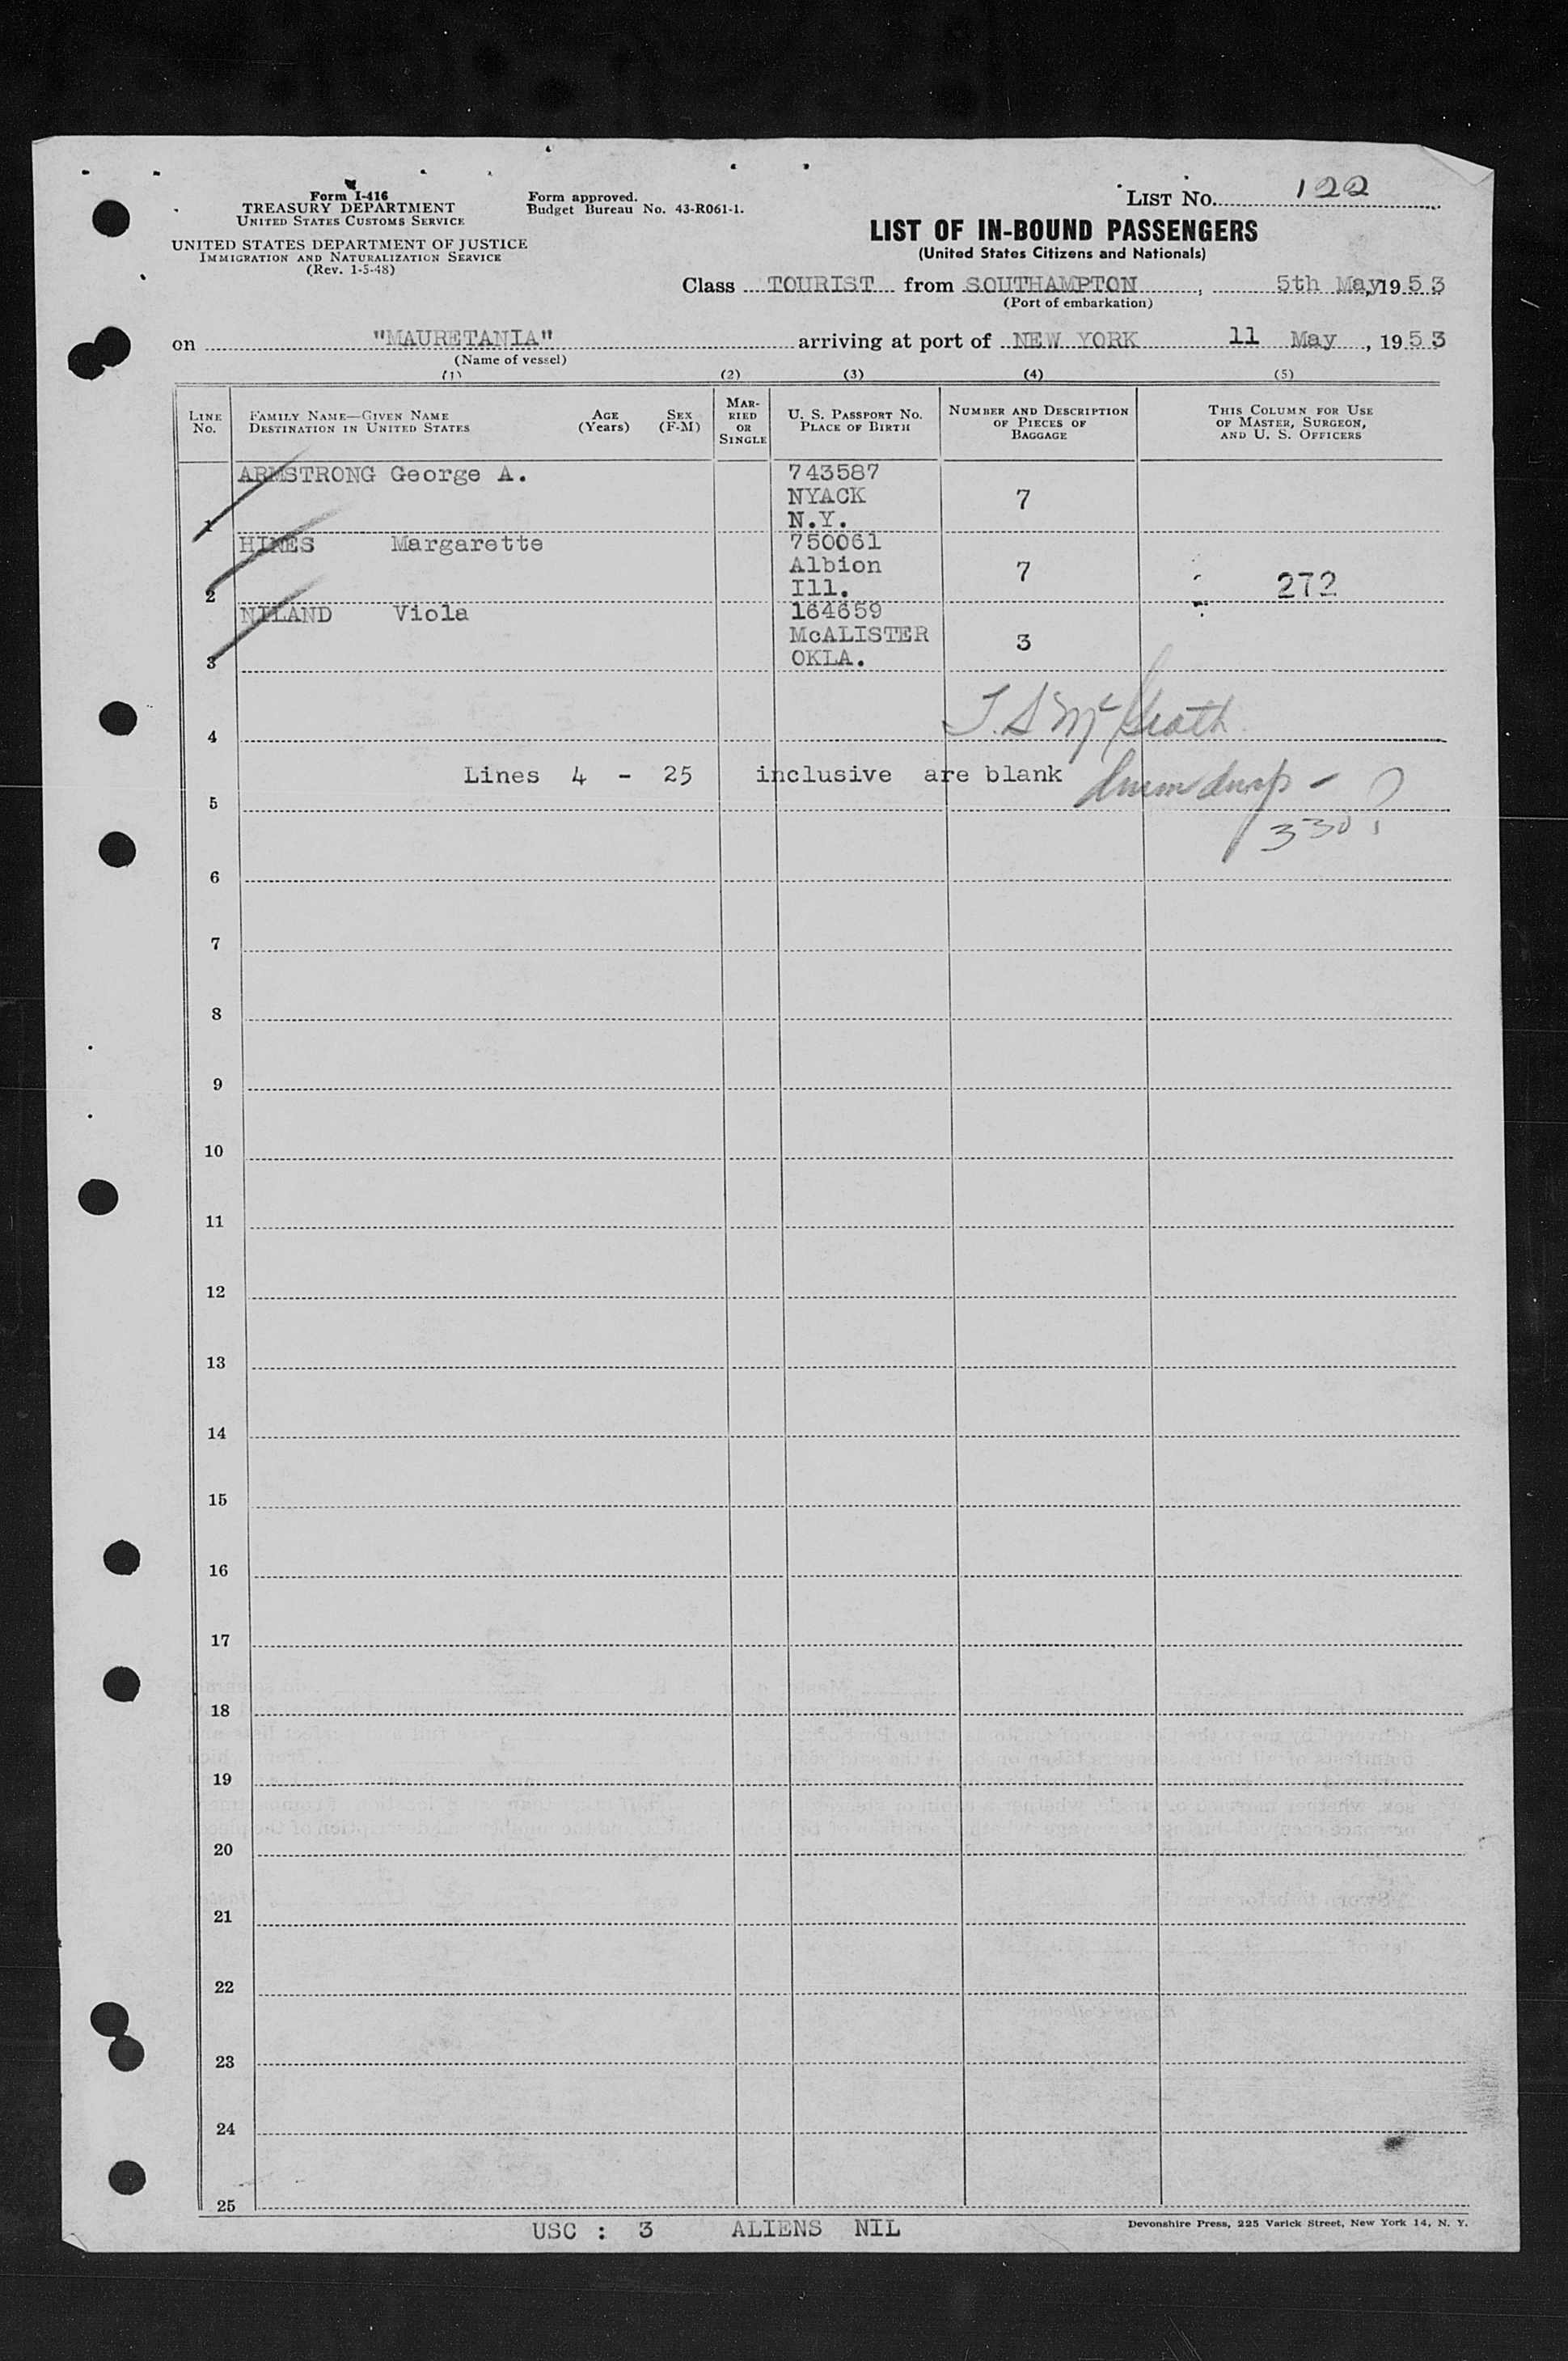 Form I-416
TREASURY DEPARTMENT
UNITED STATES CUSTOMS SERVICE
UNITED STATES DEPARTMENT OF JUSTICE
IMMIGRATION AND NATURALIZATION SERVICE
(Rev. 1-5-48)
Form approved.
Budget Bureau No. 43-R061-1.
LIST No. 122
LIST OF IN-BOUND PASSENGERS
(United States Citizens and Nationals)
Class TOURIST from SOUTHAMPTON, 5th May, 1953
(Port of embarkation)
on "MAURETANIA" arriving at port of NEW YORK 11 May, 1953
(Name of vessel)
(1) (2) (3) (4) (5)
LINE No. FAMILY NAME—GIVEN NAME DESTINATION IN UNITED STATES AGE (Years) SEX (F-M) MARRIED OR SINGLE U. S. PASSPORT No. PLACE OF BIRTH NUMBER AND DESCRIPTION OF PIECES OF BAGGAGE THIS COLUMN FOR USE OF MASTER, SURGEON, AND U. S. OFFICERS
ARMSTRONG George A. 743587
NYACK 7
1 N.Y.
HINES Margarette 750061
Albion 7
2 Ill. 272
NILAND Viola 164659
McALISTER 3
3 OKLA.
4
Lines 4 - 25 inclusive are blank
5
330?
6
7
8
9
10
11
12
13
14
15
16
17
18
19
20
21
22
23
24
25
USC : 3 ALIENS NIL
Devonshire Press, 225 Varick Street, New York 14, N. Y.